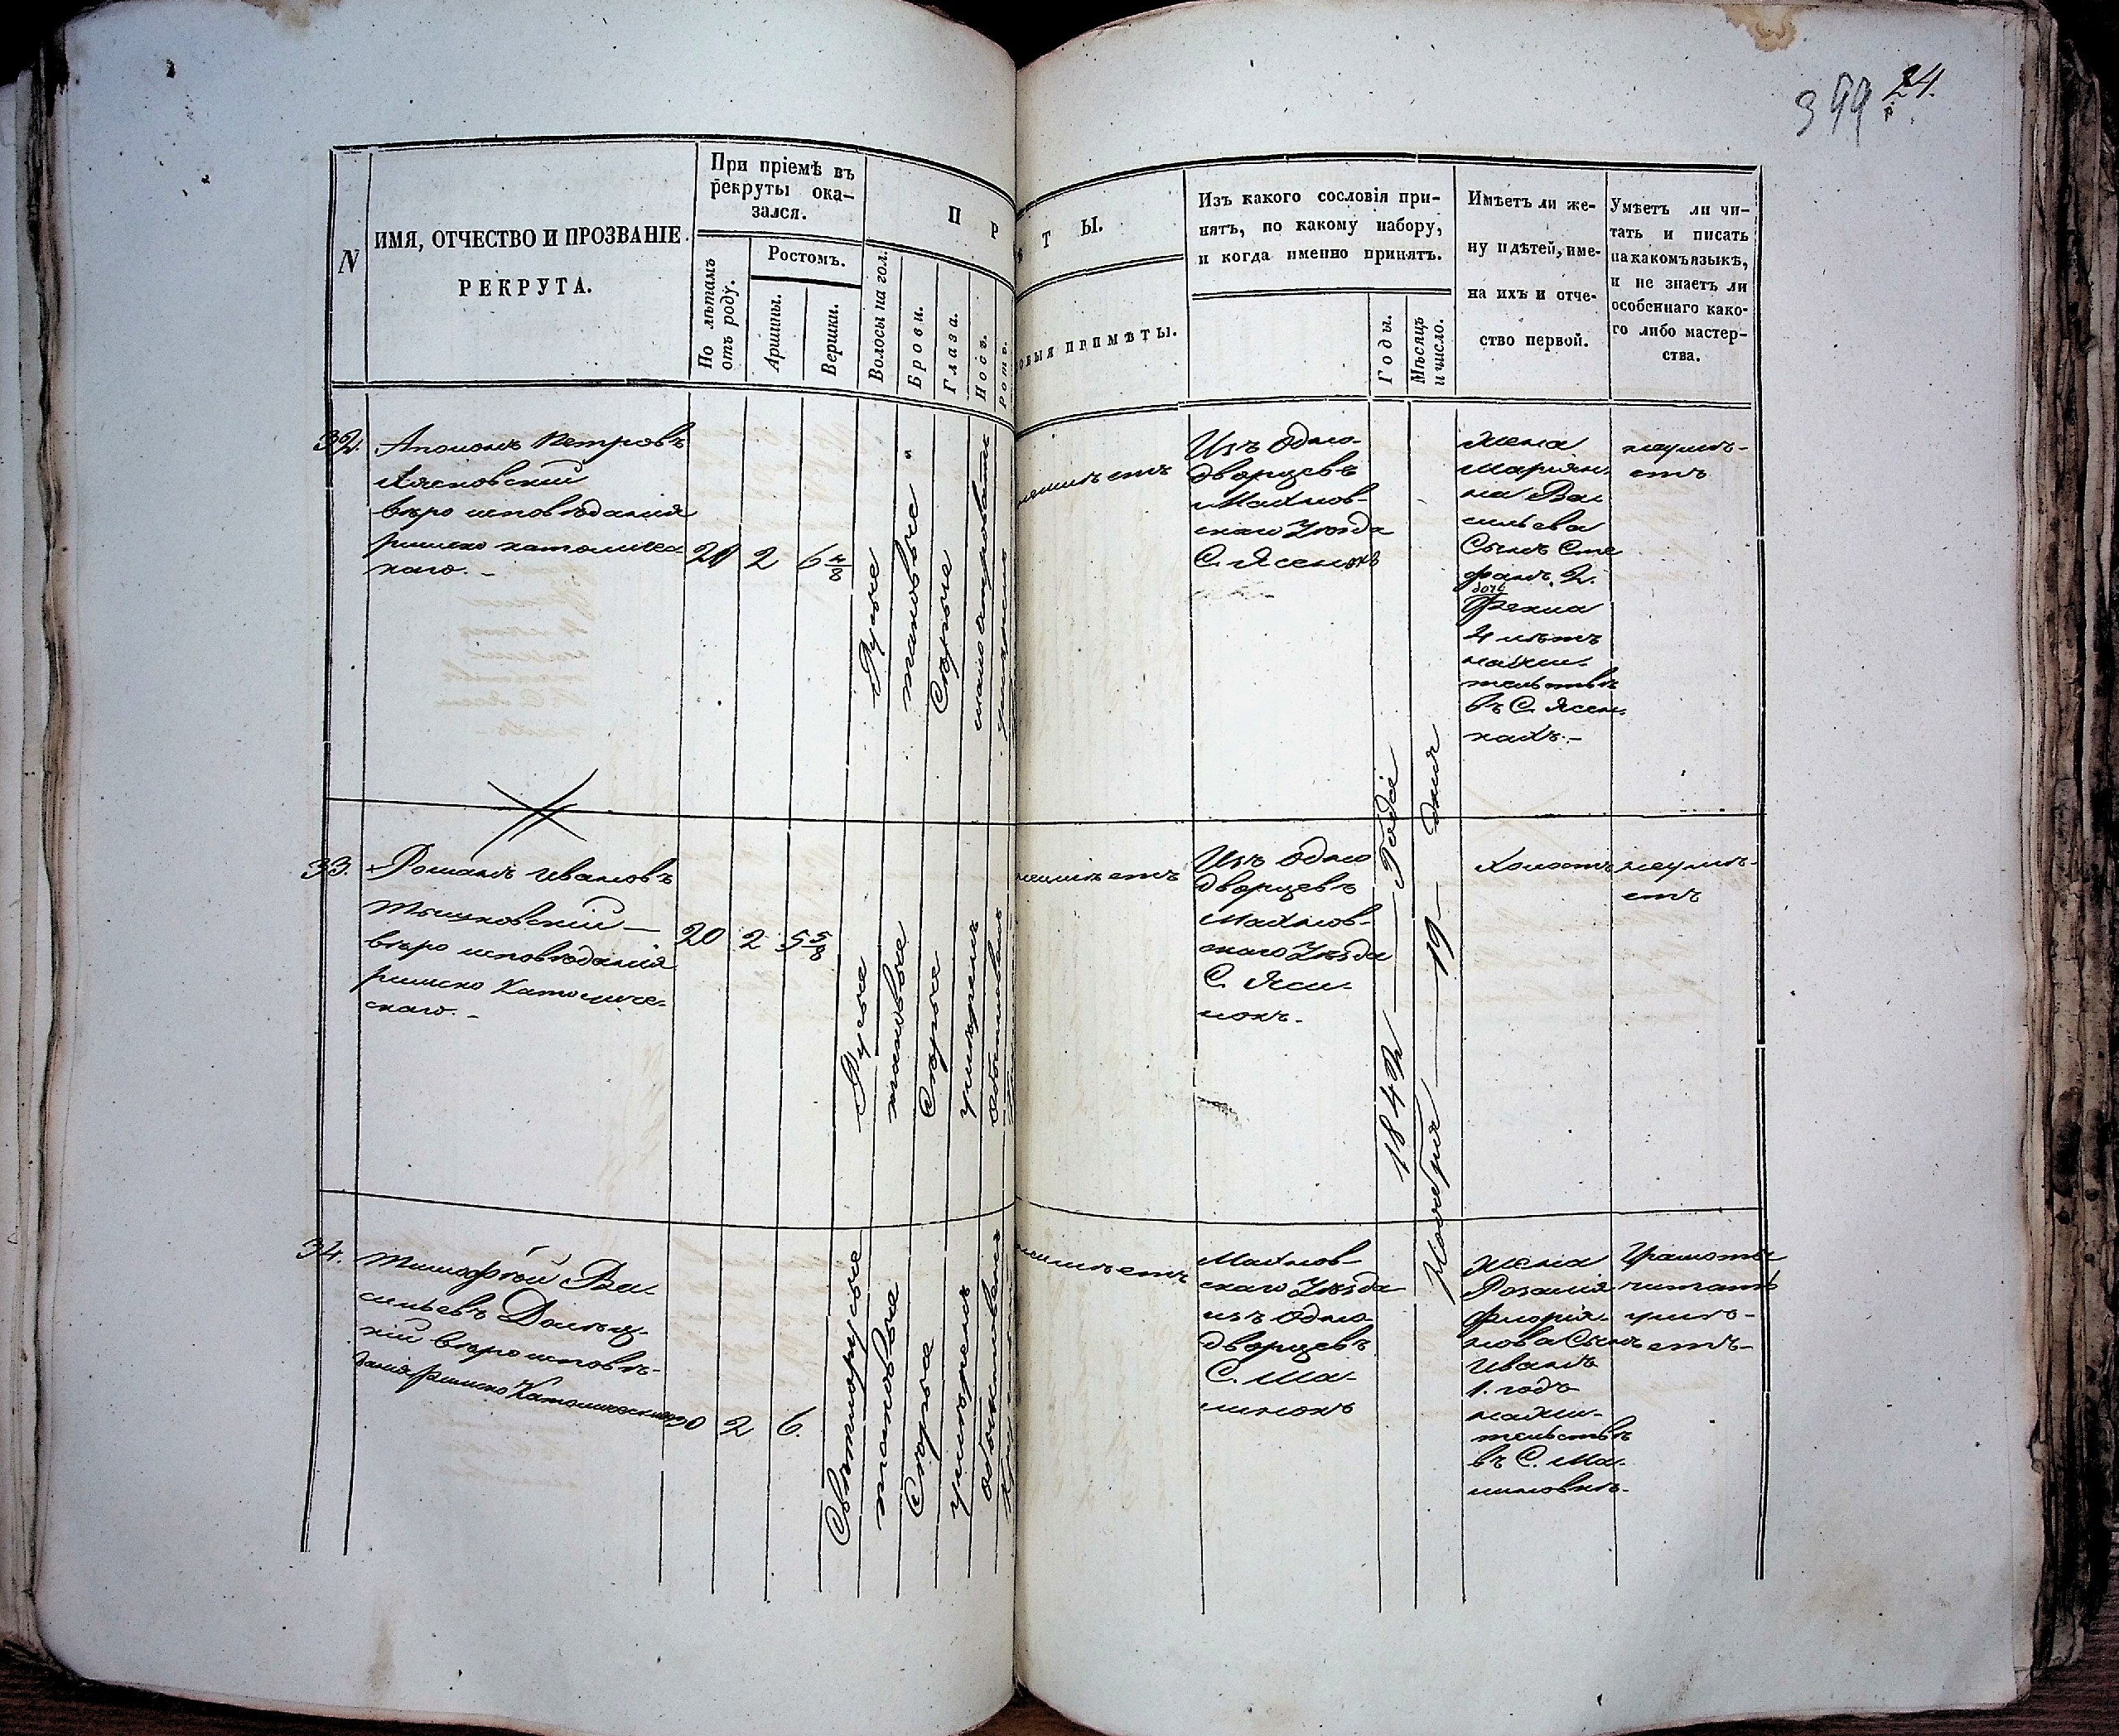 399 24.
N
ИМЯ, ОТЧЕСТВО И ПРОЗВАНІЕ
РЕКРУТА.
При пріемѣ въ
рекруты ока-
зался.
По лѣтамъ
отъ роду.
Ростомъ.
Аршины.
Вершки.
П Р
Волосы на гол.
Брови.
Глаза.
Носъ.
Ротъ.
Т Ы.
ПРИМѢТЫ.
Изъ какого сословія при-
нятъ, по какому набору,
и когда именно принятъ.
Годы.
Мѣсяцъ
и число.
Имѣетъ ли же-
ну и дѣтей, име-
на ихъ и отче-
ство первой.
Умѣетъ ли чи-
тать и писать
на какомъ языкѣ,
и не знаетъ ли
особеннаго како-
го либо мастер-
ства.
32.
Петровъ
вѣро исповѣданія
римско католичес
каго. -
2
6 4/8
Русые
таковые
Сѣрые
Изъ Одно-
дворцевъ
Махнов-
скаго Уѣзда
С.
жена
Маріян-
на Ва-
сильева
Сынъ Сте
фанъ 2.
дочь
4 лѣтъ
на жи-
тельствѣ
въ С. Ясен-
кахъ.-
неумѣ-
етъ
33.
Романъ Ивановъ
вѣро исповѣданія
римско Католиче-
скаго. -
20
2
5 5/8
Русые
таковые
Сѣрые
умѣренъ
обыкновенъ
Изъ Одно
дворцевъ
Махнов-
скаго Уѣзда
С.
1842 Года
Ноября 19 дня
Холостъ
неумѣ-
етъ
34.
Тимофѣй Ва-
сильевъ
кій вѣро исповѣ-
данія римско Католическаго
30
2
6.
Свѣтлорусые
таковые
Сѣрые
умѣренъ
обыкновенъ
Махнов-
скаго Уѣзда
изъ Одно-
дворцевъ
С. Ма-
линокъ
жена
Розалія
Флоріа-
нова Сынъ
Иванъ
1. годъ
на жи-
тельствѣ
въ С. Ма-
Грамоты
читать
умѣ-
етъ-